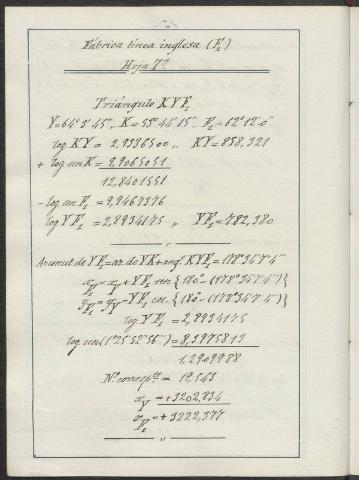 Fábrica línea inglesa (F₁)
Hoja 7ª
Triángulo KYF₁
Y=64°3'45" „ K=53°44'15" „ F₁=62°12'0"
log KY = 2,9336500 „ KY=858,321
+ log sen K = 9,9065051
12,8401551
- log sen F₁ = 9,9467376
log YF₁ = 2,8934175 „ YF₁=782,380
Acimut de YF₁=az. de YK+angº KYF₁=178°34'7"4'''
x_F₁ = x_Y + YF₁ sen {180°-(178°34'7"4''')}
y_F₁ = y_Y - YF₁ cos {180°-(178°34'7"4''')}
log YF₁ = 2,8934175
log sen (1°25'52"56''') = 8,3975813
1,2909988
Nº corresp.te = 19,543
x_Y = +3202,834
x_F₁ = +3222,377